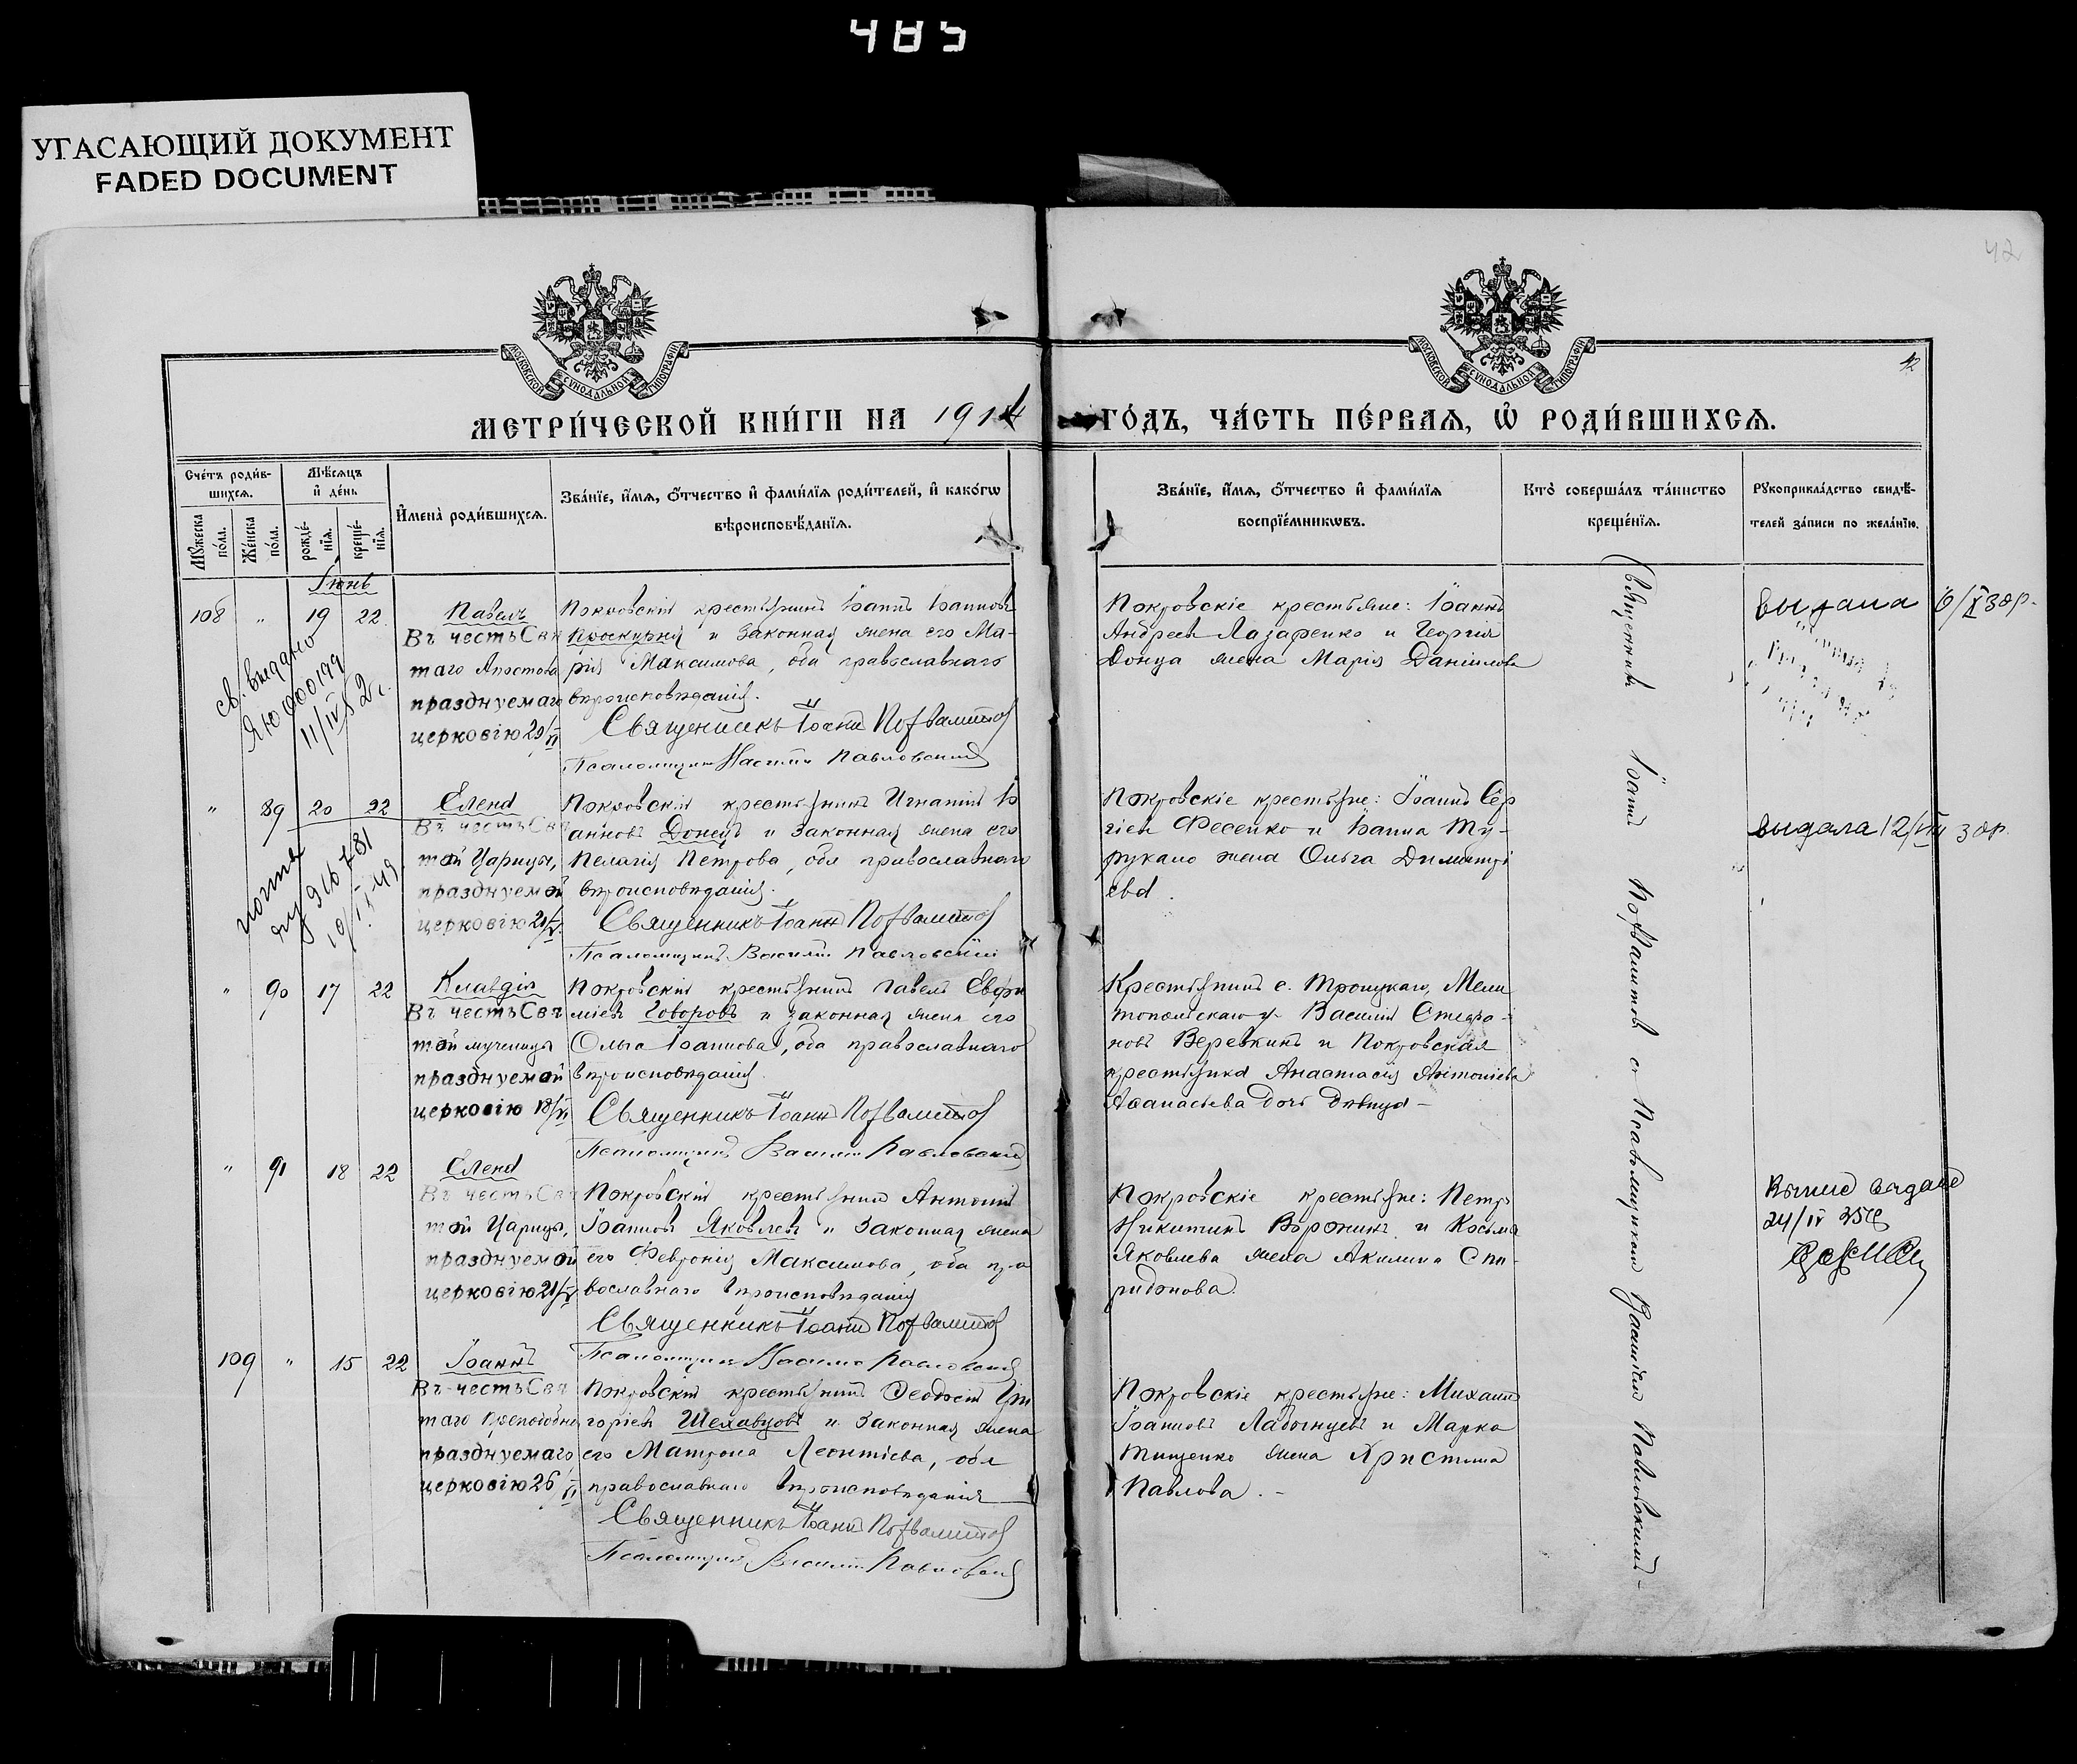 485
УГАСАЮЩИЙ ДОКУМЕНТ
FADED DOCUMENT
42
42
МОСКОВСКОЙ СѴНОДАЛЬНОЙ ТИПОГРАФІИ
МОСКОВСКОЙ СѴНОДАЛЬНОЙ ТИПОГРАФІИ
МЕТРИ́ЧЕСКОЙ КНИ́ГИ НА 1914
ГО́ДЪ, ЧА́СТЬ ПЕ́РВАЯ, Ѽ РОДИ́ВШИХСЯ.
Сче́тъ роди́в-
шихся.
Мѣ́сяцъ
и҆ де́нь
Мꙋжеска по́ла.
Же́нска по́ла.
рожде́-
нїѧ.
креще́-
нїѧ.
И҆мена̀ роди́вшихся.
Зва́нїе, и҆́мя, ѻ҆́тчество и҆ фами́лїя роди́телей, и҆ како́гѡ
вѣроисповѣ́данїя.
Зва́нїе, и҆́мя, ѻ҆́тчество и҆ фами́лїя
воспрїе́мникѡвъ.
Кто̀ соверша́лъ та́инство
креще́нїя.
Рꙋкоприкла́дство свидѣ́-
телей за́писи по жела́нїю.
Іюнь
108 " 19 22
Павелъ
Въ честь Свя
таго Апостола
празднуемаго
церковію 29/VI
Покровскій крестьянинъ Іоаннъ Іоанновъ
Проскурня и законная жена его Ма-
рія Максимова, оба православнаго
вѣроисповѣданія.
Священникъ Іоаннъ
Псаломщикъ Василій Павловскій
Покровскіе крестьяне: Іоаннъ
Андреевъ Лазаренко и Георгія
Донца жена Марія Даніилова
выдана 6/X 30р.
св. выдано
ЯЮ 000199
11/IV 52 г.
" 89 20 22
Елена
Въ честь Свя
той Царицы,
празднуемой
церковію 21/V
Покровскій крестьянинъ Игнатій Іо
анновъ Донецъ и законная жена его
Пелагія Петрова, оба православнаго
вѣроисповѣданія.
Священникъ Іоаннъ
Псаломщикъ Василій Павловскій
Покровскіе крестьяне: Іоаннъ Сер
гіевъ Фесенко и Іоанна Ту-
рукало жена Ольга Димитрі
ева.
выдала 12/VIII 30р.
916781
" 90 17 22
Клавдія
Въ честь Свя
той мученицы
празднуемой
церковію 18/VI
Покровскій крестьянинъ Павелъ Евфи
міевъ Говоровъ и законная жена его
Ольга Іоаннова, оба православнаго
вѣроисповѣданія.
Священникъ Іоаннъ
Псаломщикъ Василій Павловскій
Крестьянинъ с. Троицкаго, Мели
топольскаго у. Василій Стефа-
новъ Веревкинъ и Покровская
крестьянка Анастасія Антоніева
Аѳанасьева дочь дѣвица –
" 91 18 22
Елена
Въ честь Свя
той Царицы,
празднуемой
церковію 21/V
Покровскій крестьянинъ Антоній
Іоанновъ Яковлевъ и законная жена
его Февронія Максимова, оба пра
вославнаго вѣроисповѣданія
Священникъ Іоаннъ
Псаломщикъ Василій Павловскій
Покровскіе крестьяне: Петръ
Никитинъ Воронинъ и Косьма
Яковлева жена Акилина Спи-
ридонова.
24/IV 35г
109 " 15 22
Іоаннъ
Въ честь Свя
таго Преподобна
празднуемаго
церковію 26/VI
Покровскій крестьянинъ Ѳеодосій Гри
горіевъ Шелавцовъ и законная жена
его Матрона Леонтіева, оба
православнаго вѣроисповѣданія
Священникъ Іоаннъ
Псаломщикъ Василій Павловскій
Покровскіе крестьяне: Михаилъ
Іоанновъ Ладынцевъ и Марка
Тищенко жена Христина
Павлова. –
Священникъ Іоаннъ съ Псаломщикомъ Василіемъ Павловскимъ –